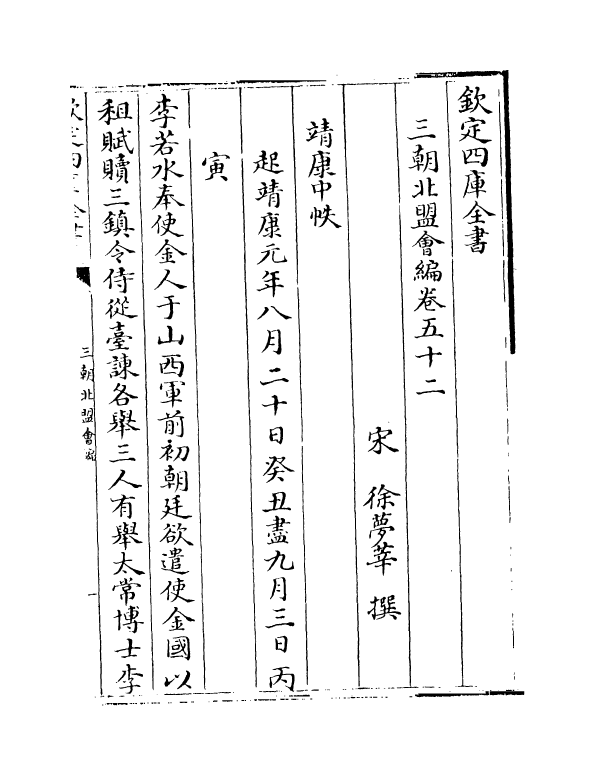 欽定四庫全書
三朝北盟會編卷五十二
宋 徐夢莘 撰
靖康中帙
起靖康元年八月二十日癸丑盡九月三日丙
寅
李若水奉使金人于山西軍前初朝廷欲遣使金國以
租賦贖三鎮令侍從臺諫各舉三人有舉太常博士李
三朝北盟會編
一